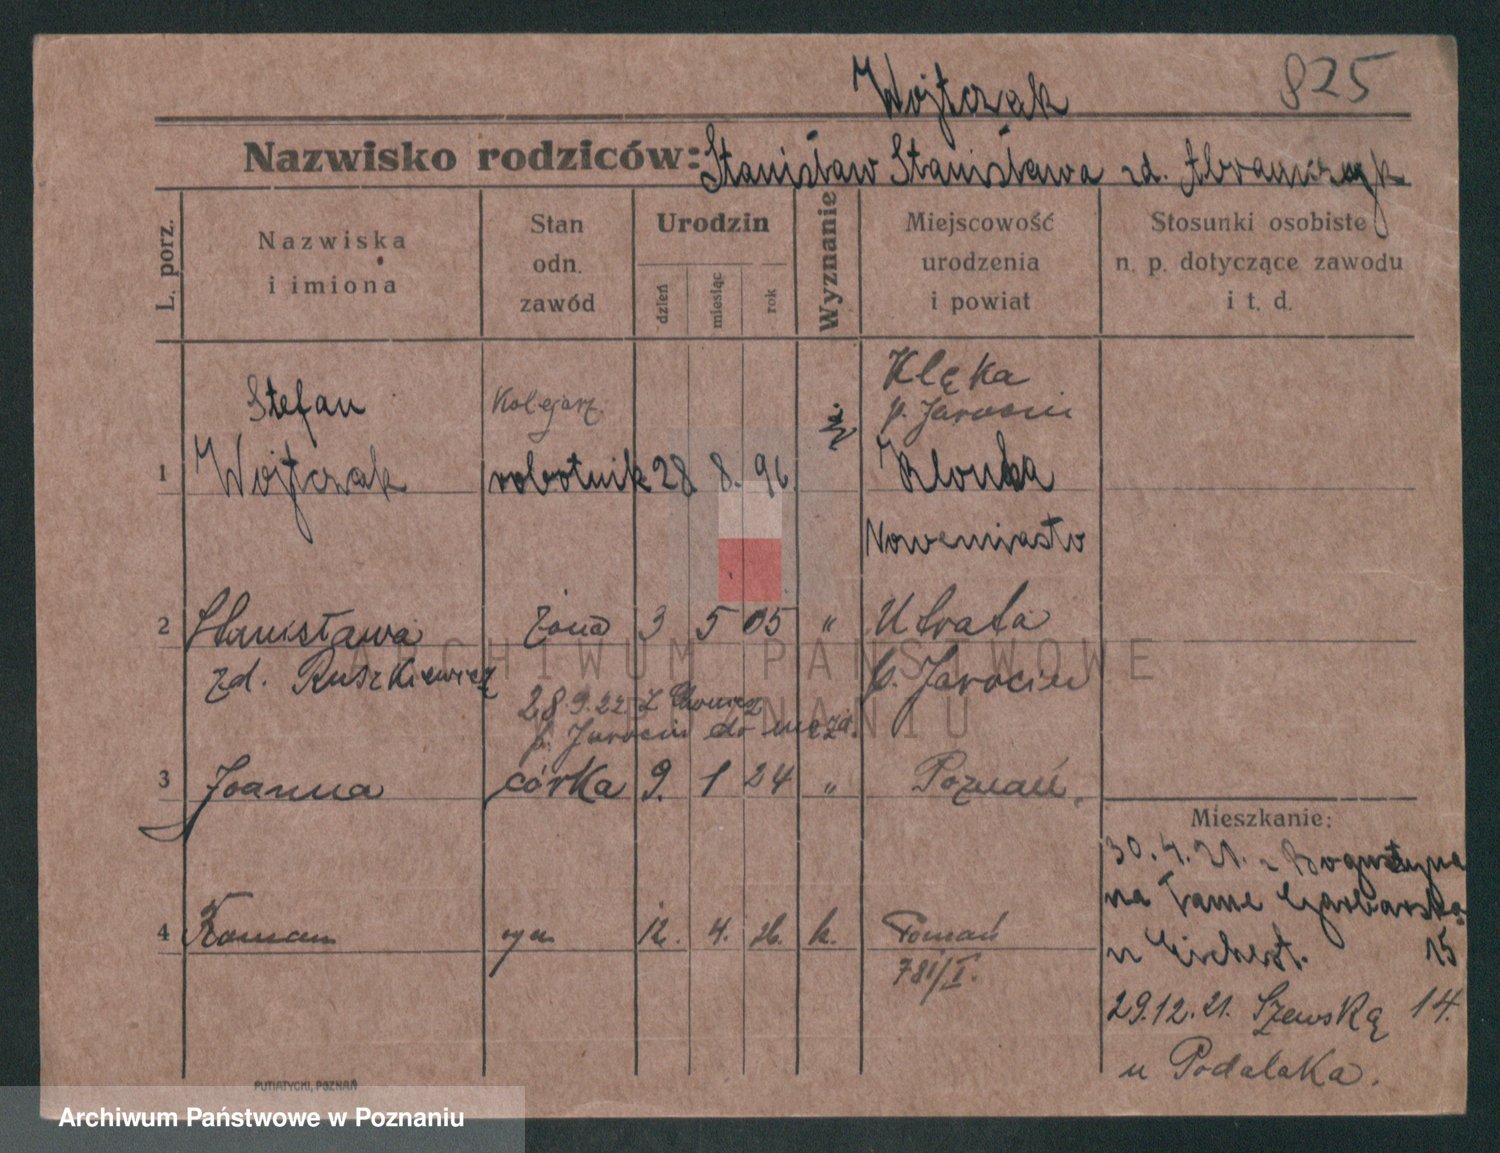 Wojtczak 825
Nazwisko rodziców: Stanisław Stanisława zd. Abramczyk
L. porz.
Nazwiska i imiona
Stan odn. zawód
Urodzin
dzień miesiąc rok
Wyznanie
Miejscowość urodzenia i powiat
Stosunki osobiste n. p. dotyczące zawodu i t. d.
Klęka
Stefan Kolejarz p. Jarocin
1 Wojtczak robotnik 28 8. 96 Klonka
Nowemiasto
2 Stanisława żona 3 5 05 " Utrata
zd. Ruszkiewicz p. Jarocin
28.9.22 z
p. Jarocin do męża.
3 Joanna córka 9. 1 24 " Poznań.
Mieszkanie:
30.4.21. z
na Tame Garbarską
4 Roman syn 12. 4. 26. k. Poznań
u 15
781/I.
29.12.21. Szewską 14.
u Podolaka.
PUTIATYCKI, POZNAŃ
ARCHIWUM PAŃSTWOWE
W POZNANIU
Archiwum Państwowe w Poznaniu